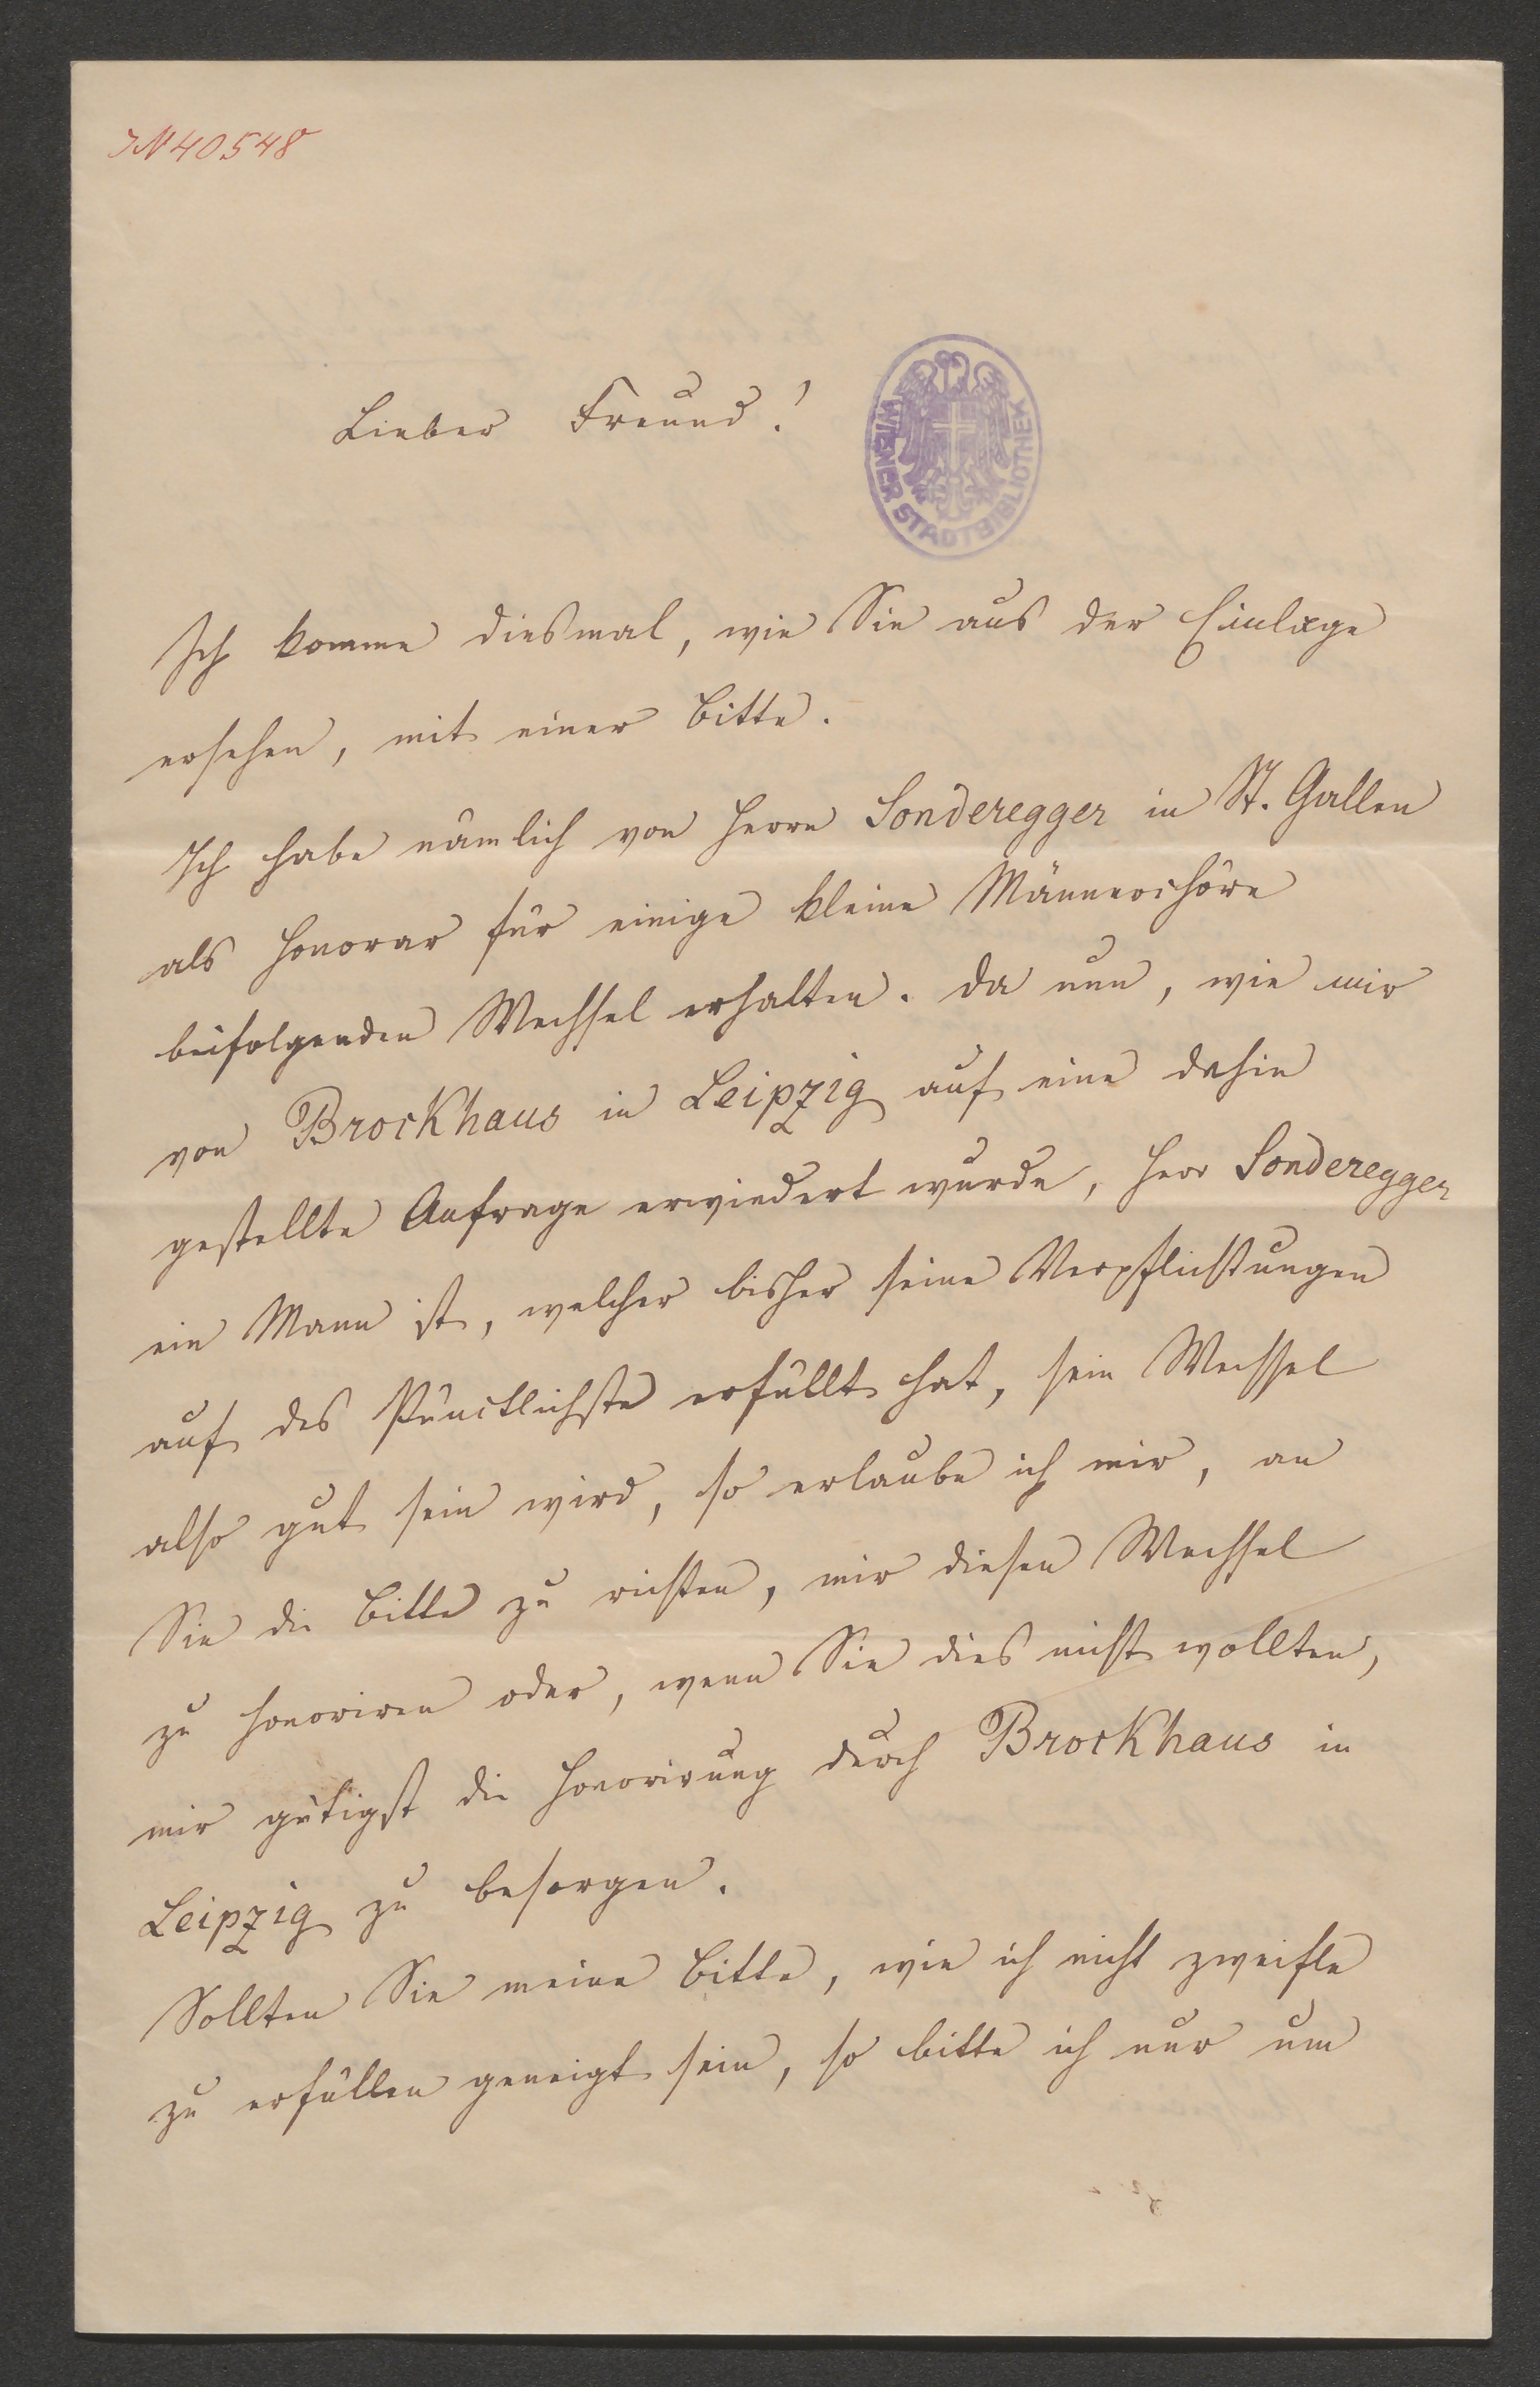 IN 40548
Lieber Freund!
WIENER STADTBIBLIOTHEK
Ich komme diesmal, wie Sie aus der Einlage
ersehen, mit einer Bitte.
Ich habe nämlich von Herrn Sonderegger in St. Gallen
als Honorar für einige kleine Männerchöre
beifolgenden Wechsel erhalten. Da nun, wie mir
von Brockhaus in Leipzig auf eine dahin
gestellte Anfrage erwiedert wurde, Herr Sonderegger
ein Mann ist, welcher bisher seine Verpflichtungen
auf das Pünctlichste erfüllt hat, sein Wechsel
also gut sein wird, so erlaube ich mir, an
Sie die Bitte zu richten, mir diesen Wechsel
zu honoriren oder, wenn Sie dies nicht wollten,
mir gütigst die Honorirung durch Brockhaus in
Leipzig zu besorgen.
Sollten Sie meine Bitte, wie ich nicht zweifle
zu erfüllen geneigt sein, so bitte ich nur um